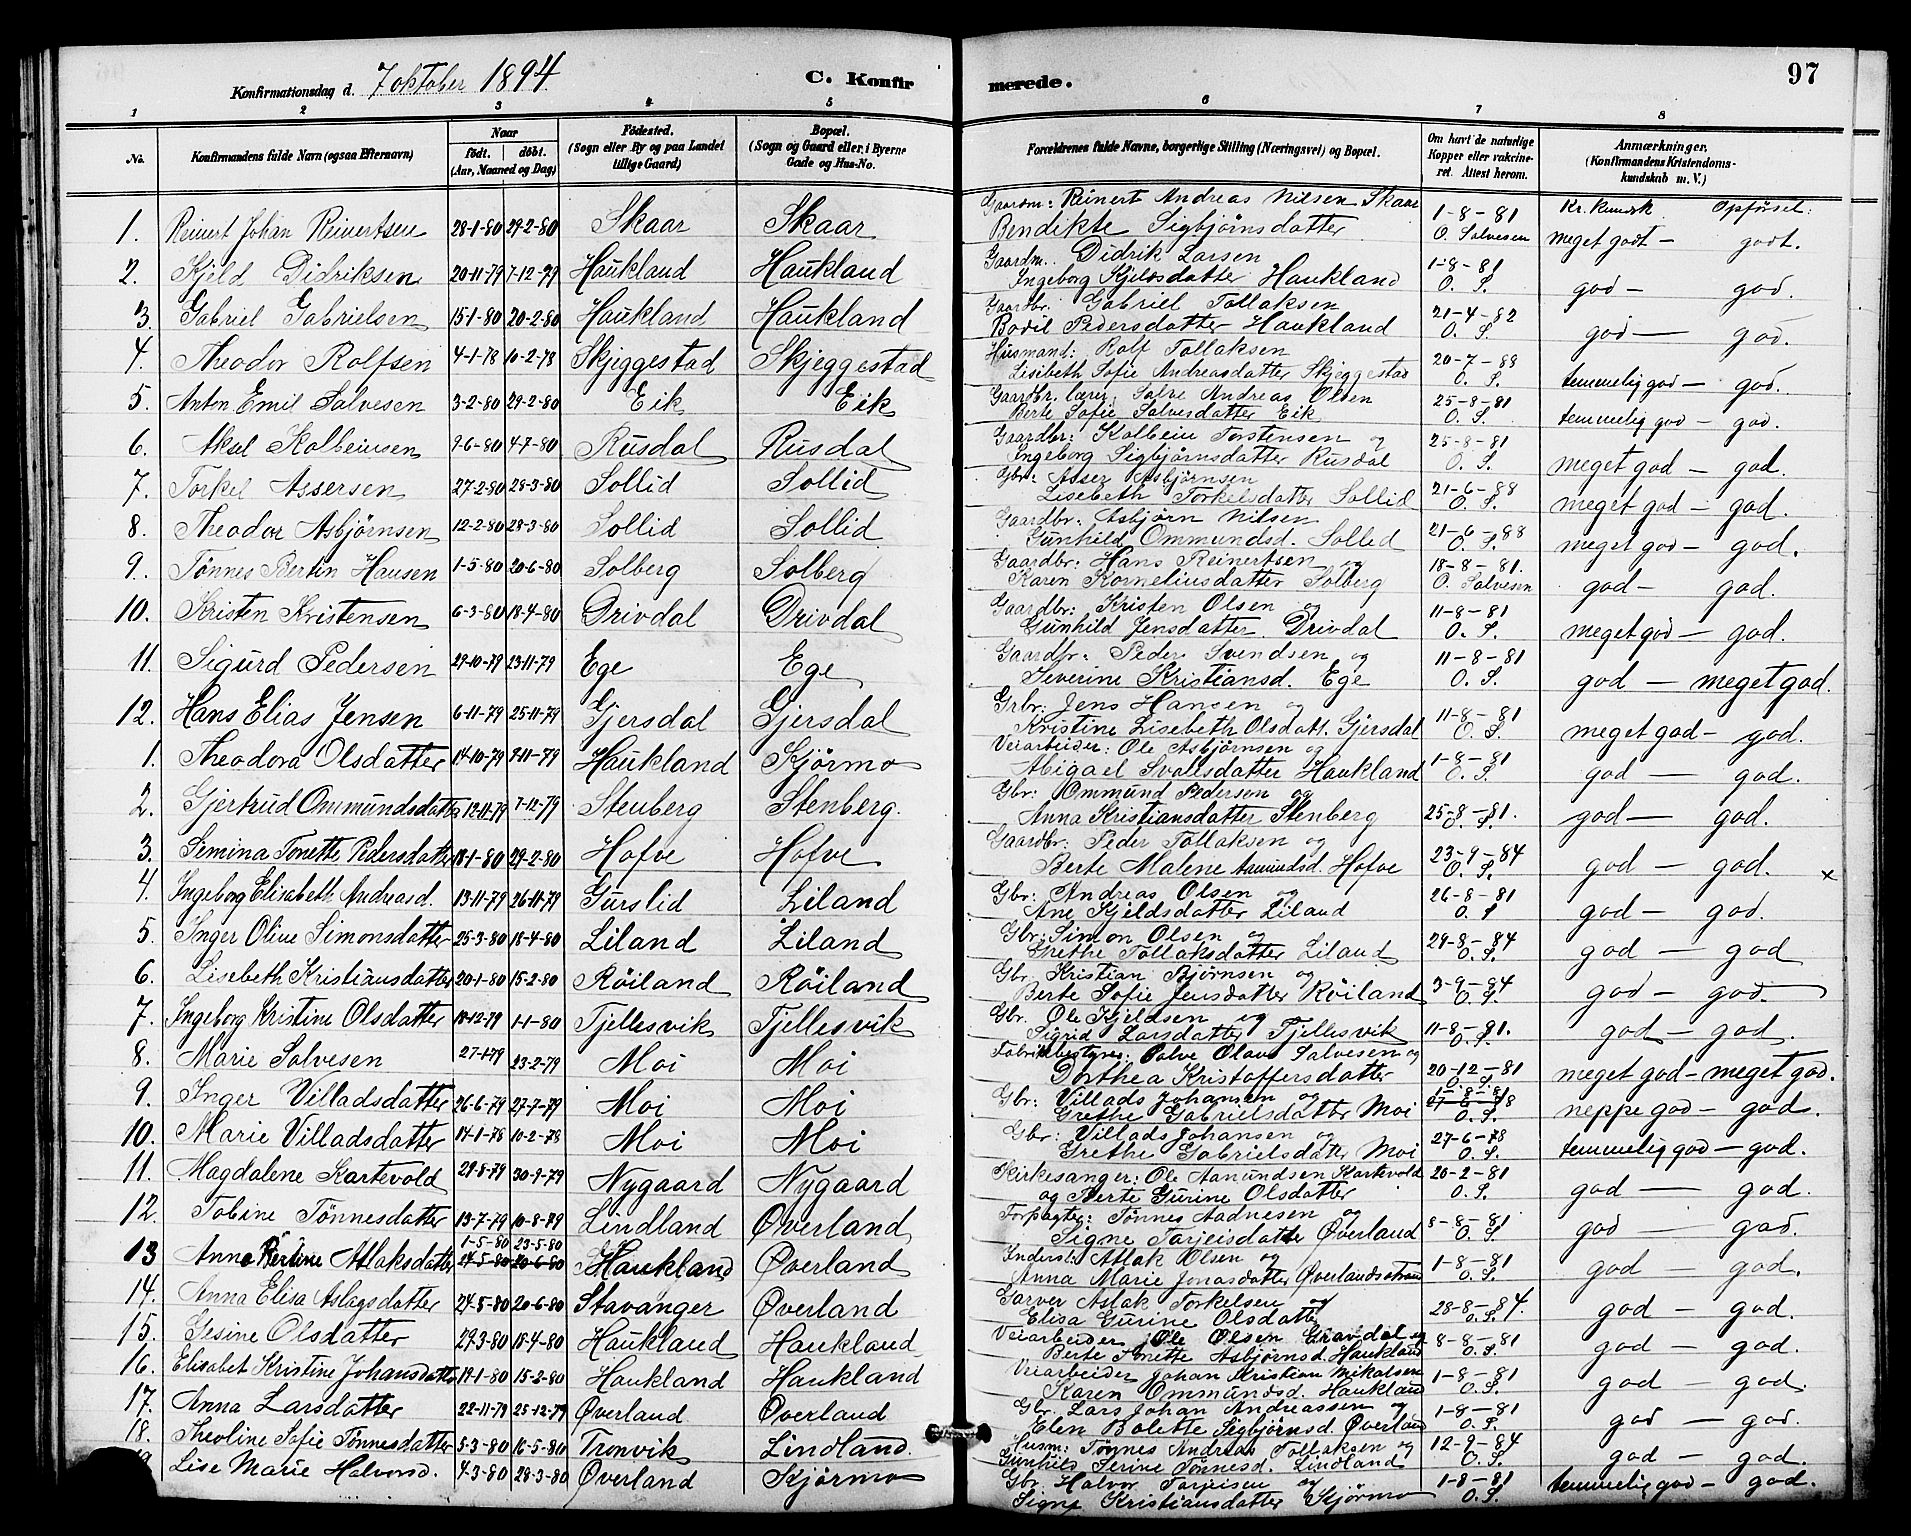 Konfirmationsdag d. 7 oktober 1894. C. Konfirmerede. 97
1 2 3 4 5 6 7 8
No. Konfirmandens fulde Navn (ogsaa Efternavn) Naar født. døbt. (Aar, Maaned og Dag) Fødested. (Sogn eller By og paa Landet tillige Gaard) Bopæl. (Sogn og Gaard eller i Byerne Gade og Hus-No. Forældrenes fulde Navne, borgerlige Stilling (Næringsvei) og Bopæl. Om havt de naturlige Kopper eller vakcineret. Attest herom. Anmærkninger. (Konfirmandens Kristendomskundskab m. V.)
Kr. kundsk. Opførsel:
1. Reinert Johan Reinertsen 28-1-80 29-2-80 Skaar Skaar Gaardm: Reinert Andreas Nilsen Skaar 1-8-81
Bendikte Sigbjørnsdatter O. Salvesen meget godt – godt.
2. Kjeld Didriksen 20-11-79 7-12-79 Haukland Haukland Gaardm. Didrik Larsen 1-8-81
Ingeborg Kjeldsdatter Haukland O. S. god – god.
3. Gabriel Gabrielsen 15-1-80 20-2-80 Haukland Haukland Gaardbr. Gabriel Tollaksen 21-4-82
Bodil Pedersdatter Haukland O. S. god – god.
4. Theodor Rolfsen 4-1-78 10-2-78 Skjeggestad Skjeggestad Husmand: Rolf Tollaksen 20-7-88
Lisebeth Sofie Andreasdatter Skjeggestad O. S. temmelig god – god.
5. Anton Emil Salvesen 3-2-80 29-2-80 Eik Eik Gaardbr. lærer, Salve Andreas Olsen 25-8-81
Berte Sofie Salvesdatter Eik O. S. temmelig god – god.
6. Aksel Kolbeinsen 9-6-80 4-7-80 Rusdal Rusdal Gaardbr: Kolbein Torstensen og 25-8-81
Ingeborg Sigbjørnsdatter Rusdal O. S. meget god – god.
7. Torkel Assersen 27-2-80 28-3-80 Sollid Sollid Gbr: Asser Asbjørnsen 21-6-88
Lisebeth Torkelsdatter Sollid O. S. meget god – god.
8. Theodor Asbjørnsen 12-2-80 28-3-80 Sollid Sollid Gaardbr: Asbjørn Nilsen 21-6-88
Gunhild Ommundsd. Sollid O. S. meget god – god.
9. Tønnes Bertin Hansen 1-5-80 20-6-80 Solberg Solberg Gaardbr: Hans Reinertsen og 18-8-81.
Karen Korneliusdatter Solberg O. Salvesen god – god.
10. Kristen Kristensen 6-3-80 18-4-80 Drivdal Drivdal Gaardbr: Kristen Olsen og 11-8-81
Gunhild Jensdatter. Drivdal O. S. meget god – god.
11. Sigurd Pedersen 29-10-79 23-11-79 Ege Ege Gaardbr: Peder Svendsen og 11-8-81
Severine Kristiansd. Ege O. S. god – meget god.
12. Hans Elias Jensen 6-11-79 25-11-79 Gjersdal Gjersdal Grbr: Jens Hansen og 11-8-81
Kristine Lisebeth Olsdatt. Gjersdal O. S. meget god – god.
1. Theodora Olsdatter 14-10-79 9-11-79 Haukland Kjørmo Veiarbeider: Ole Asbjørnsen og 1-8-81
Abigael Svalesdatter Haukland O. S. god – god.
2. Gjertrud Ommundsdatter 12-11-79 7-12-79 Stenberg Stenberg. Gbr: Ommund Pedersen og 25-8-81.
Anna Kristiansdatter Stenberg O. S. god – god.
3. Simina Tonette Pedersdatter 18-1-80 29-2-80 Hofve Hofve Gaardbr: Peder Tollaksen og 23-9-84
Berte Malene Aamundsd. Hofve O. S. god – god. x
4. Ingeborg Elisabeth Andreasd. 13-11-79 26-11-79 Gurslid Liland Gbr: Andreas Olsen og 26-8-81
Ane Kjeldsdatter Liland O. S god – god.
5. Inger Oline Simonsdatter 25-3-80 18-4-80 Liland Liland Gbr: Simon Olsen og 29-8-84
Grethe Tollaksdatter Liland O. S. god – god
6. Lisebeth Kristiansdatter 20-1-80 15-2-80 Røiland Røiland Gbr. Kristian Bjørnsen og 3-9-84
Berte Sofie Jensdatter Røiland O. S. god – god.
7. Ingeborg Kristine Olsdatter 18-12-79 1-1-80 Tjellesvik Tjellesvik Gbr. Ole Kjeldsen og 11-8-81.
Sigrid Larsdatter Tjellesvik O. S. god – god.
8. Marie Salvesen 27-1-79 23-2-79 Moi Moi Fabrikbestyrer: Salve Olaus Salvesen og 20-12-81
Dorthea Kristoffersdatter O. S. meget god – meget god.
9. Inger Villadsdatter 26-6-79 27-7-79 Moi Moi Gbr: Villads Johansen og 1-8-81
Grethe Gabrielsdatter Moi O. S. neppe god – god.
10. Marie Villadsdatter 14-1-78 10-2-78 Moi Moi Gbr: Villads Johansen og 27-6-78
Grethe Gabrielsdatter Moi O. S. temmelig god – god.
11. Magdalene Kartevold 29-8-79 30-9-79 Nygaard Nygaard Kirkesanger: Ole Aanundsen Kartevold 20-2-81
og Berte Gurine Olsdatter O. S. god – god.
12. Tobine Tønnesdatter 13-7-79 10-8-79 Lindland Øverland Forpagter: Tønnes Aadnesen og 8-8-81
Signe Tarjeisdatter Øverland O. S. god – god.
1-5-80 23-5-80
13 Anne Bertine Atlaksdatter 24-5-80 20-6-80 Haukland Øverland Inderst: Atlak Olsen og 1-8-81
Anna Marie Jonasdatter Øverlandsstrand O. S. god – god.
14. Anna Elisa Aslagsdatter 24-5-80 20-6-80 Stavanger Øverland Garver Aslak Torkelsen og 28-8-84.
Elisa Gurine Olsdatter O. S. god – god.
15. Gesine Olsdatter 29-3-80 18-4-80 Haukland Haukland Veiarbeider Ole Olsen Gravdal og 8-8-81
Berte Tonette Asbjørnsd. Haukland O. S. god – god.
16. Elisabet Kristine Johansdatter 19-1-80 15-2-80 Haukland Haukland Veiarbeider Johan Kristian Mikalsen 1-8-81
Karen Ommundsd. Haukland O. S. god – god.
17. Anna Larsdatter 22-11-79 25-12-79 Øverland Øverland Gbr. Lars Johan Andreassen og 1-8-81
Elen Bolette Sigbjørnsd. Øverland O. S. god – god.
18. Theoline Sofie Tønnesdatter 5-3-80 16-5-80 Tronvik Lindland. Husm: Tønnes Andreas Tollaksen og 12-9-84
Gunhild Serine Tønnesd. Lindland O. S. god – god.
19 Lise Marie Halvorsd. 4-3-80 28-3-80 Øverland Kjørmo Gbr. Halvor Tarjeisen og 1-8-81
Signe Kristiansdatter Kjørmo O. S. temmelig god – god.